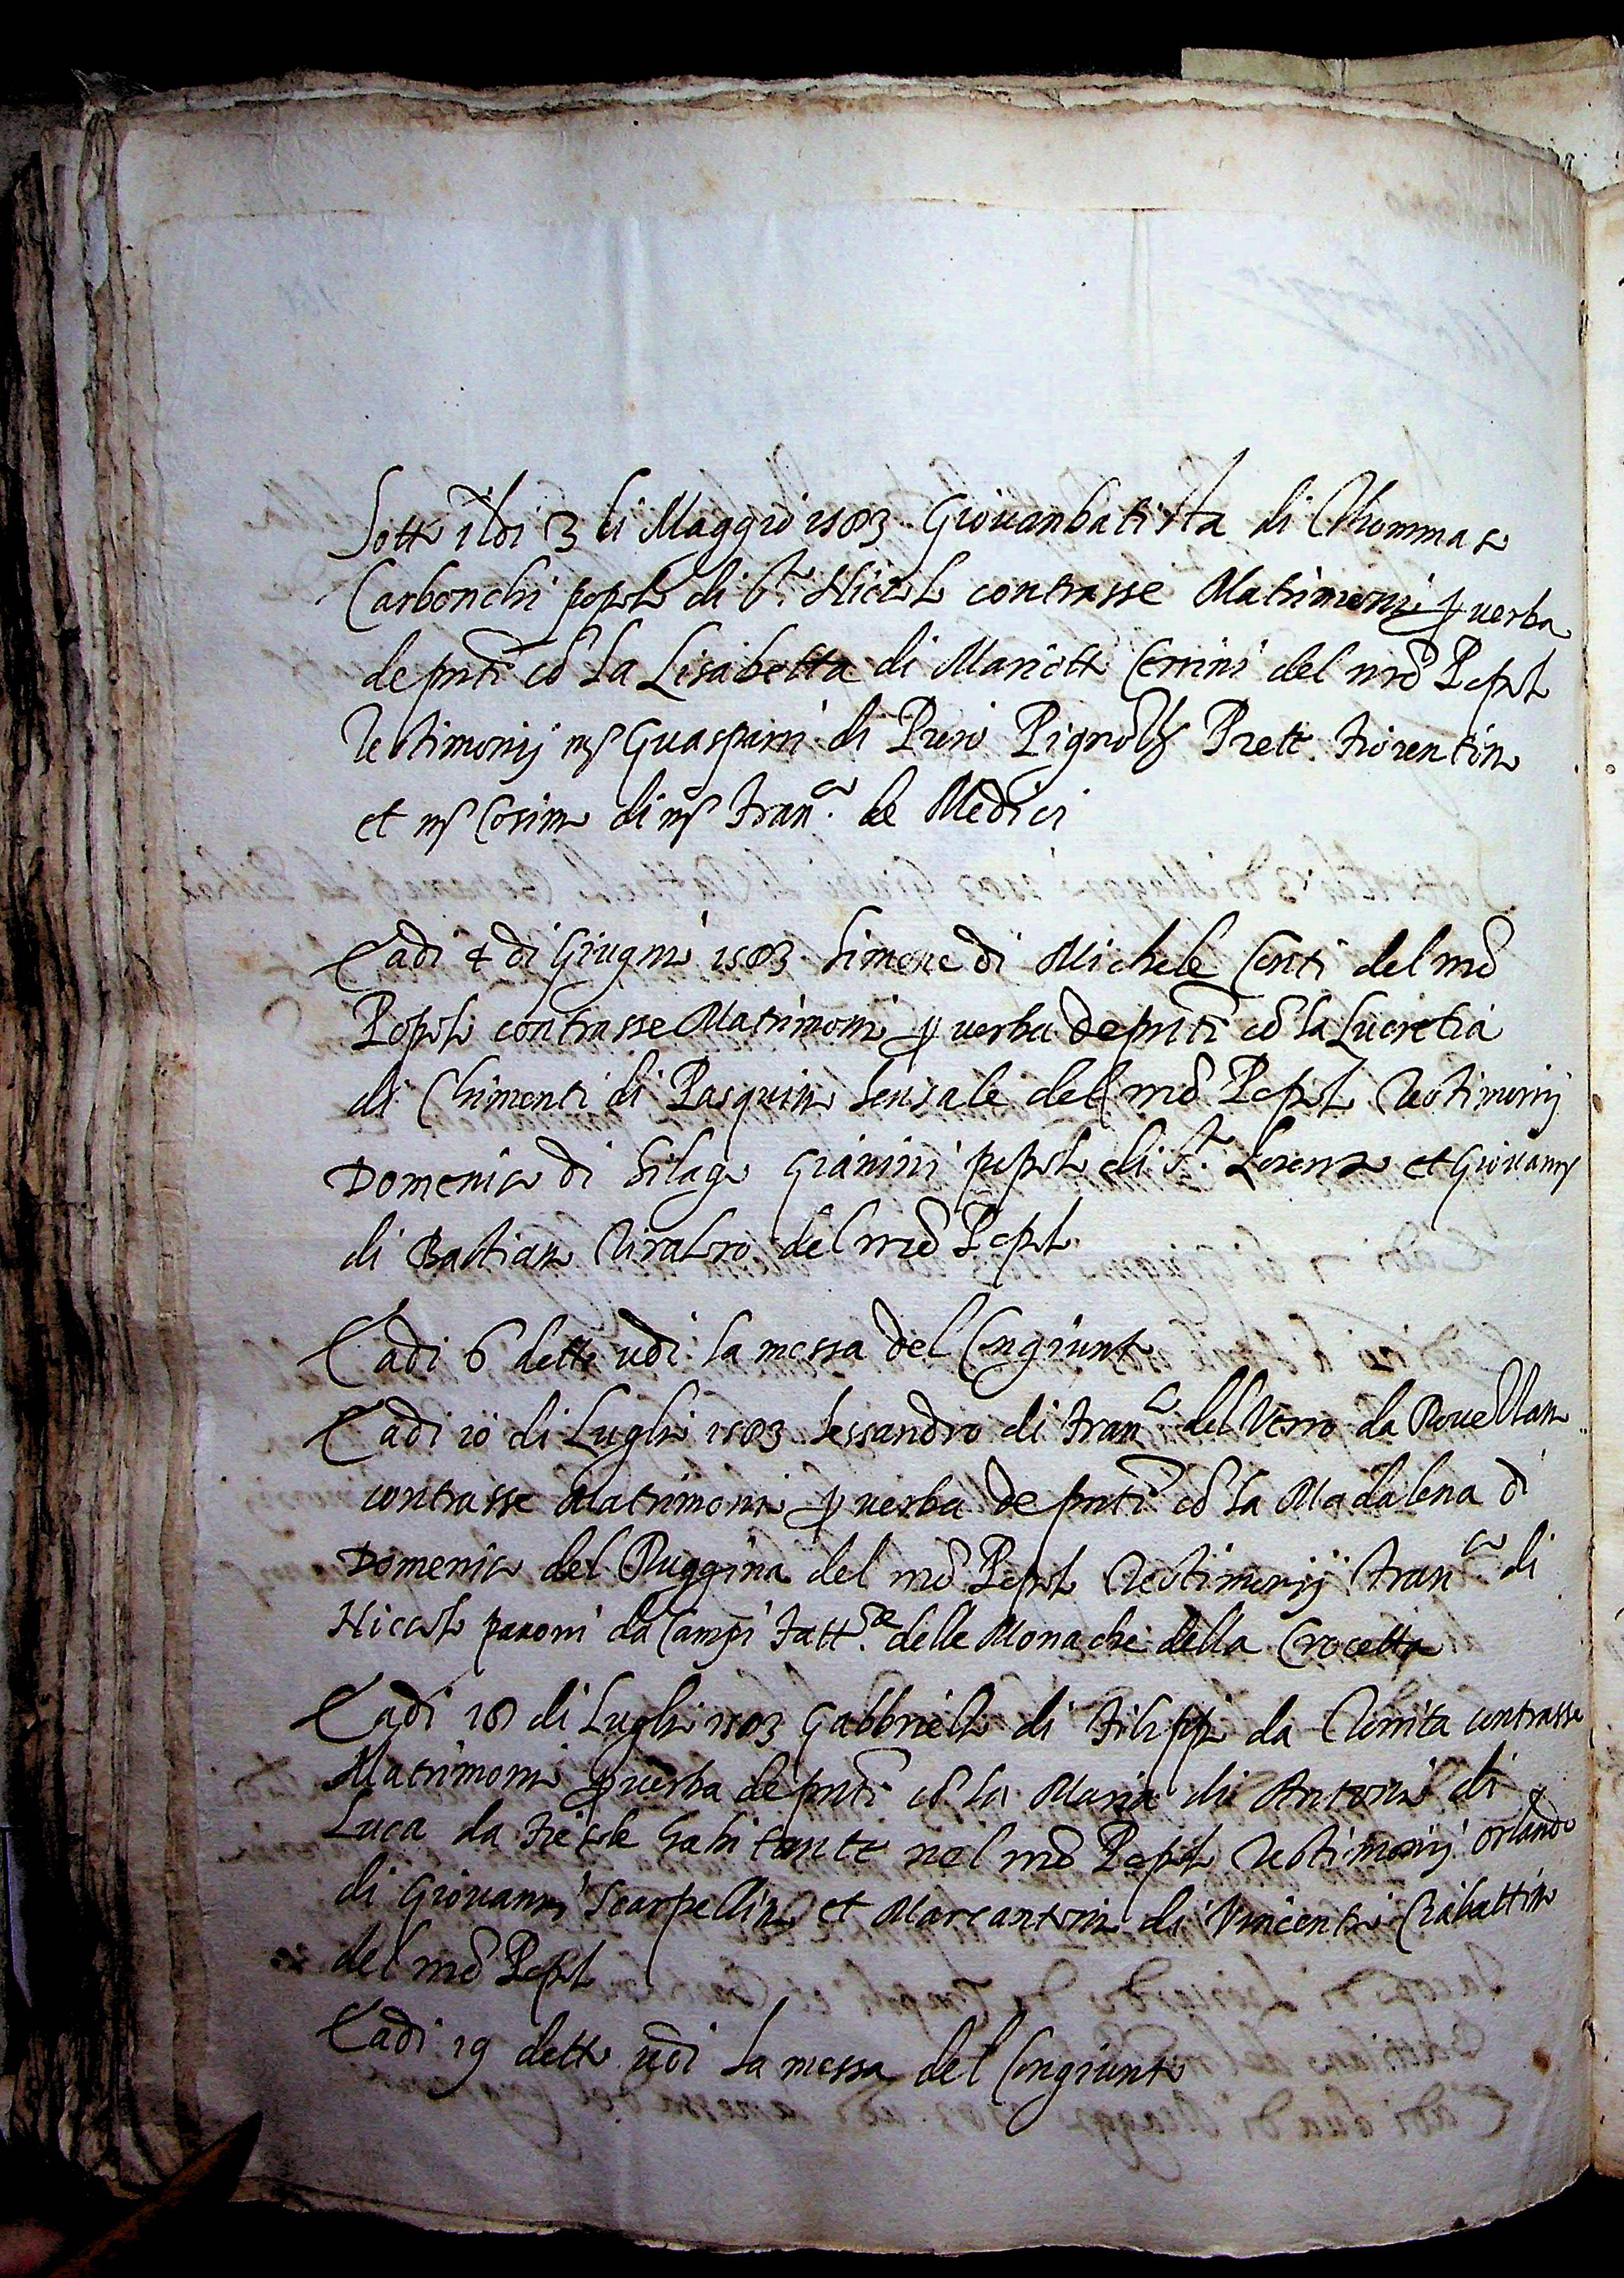 Sotto il di 3 di Maggio 1583 Giovanbatista di Thommaso
Carbonchi popolo di S.to Niccolo contrasse Matrimonio p verba
de pnti cō la Lisabetta di Mariotto Cerrini del nrō Popolo
Testimonij mſ Guasparri di Piero Prete Fiorentino
et mſ Cosimo di mſ Fran.co de Medici
E adi 4 di Giugno 1583 Simone di Michele Conti del nrō
Popolo contrasse Matrimonio p verba de pnti cō la Lucretia
di Chimenti di Pasquino Sensale del nrō Popolo Testimonij
Domenico di Gianini popolo di S.to Lorenzo et Giovannj
di Bastiano del nrō Popolo
E adi 6 detto udi la messa del Congiunto
E adi 10 di Luglio 1583 Sessandro di Fran.co del Verro da
contrasse Matrimonio p verba de pnti cō la Madalena di
Domenico del Ruggina del nrō Popolo Testimonij Fran.co di
Niccolo da Campi Fatt.re delle Monache della Crocetta
E adi 18 di Luglio 1583 Gabbriello di Filippo da contrasse
Matrimonio p verba de pnti cō la Maria di Antonio di
Luca da Fiesole habitante nel nrō Popolo Testimonij Orlando
di Giovannj Scarpellino et Marcantonio di Vincentio Ciabattino
del nrō Popolo
E adi 19 detto udi la messa del Congiunto